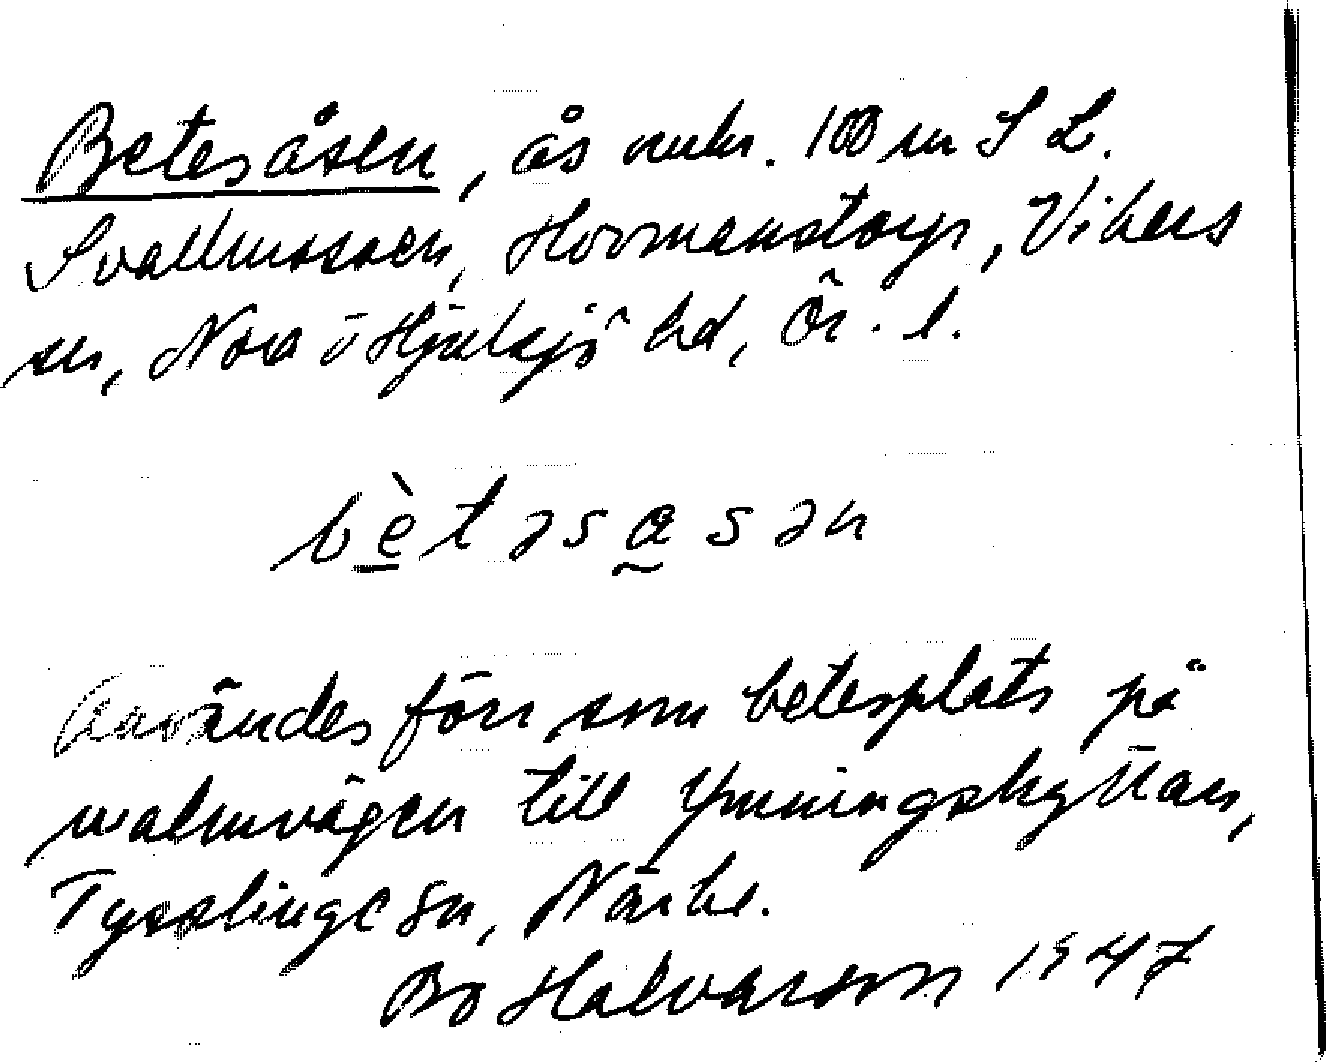 Betesåsen, ås omkr. 100 m S L.
Svallmossen, Hovmanstorp, Vikers
sn, Nora o Hjulsjö hd, Ör. l.
bètəsåsən
Användes förr som betesplats på
malmvägen till Ymningshyttan,
Tysslinge sn, Närke.
Bo Halvarson 1947